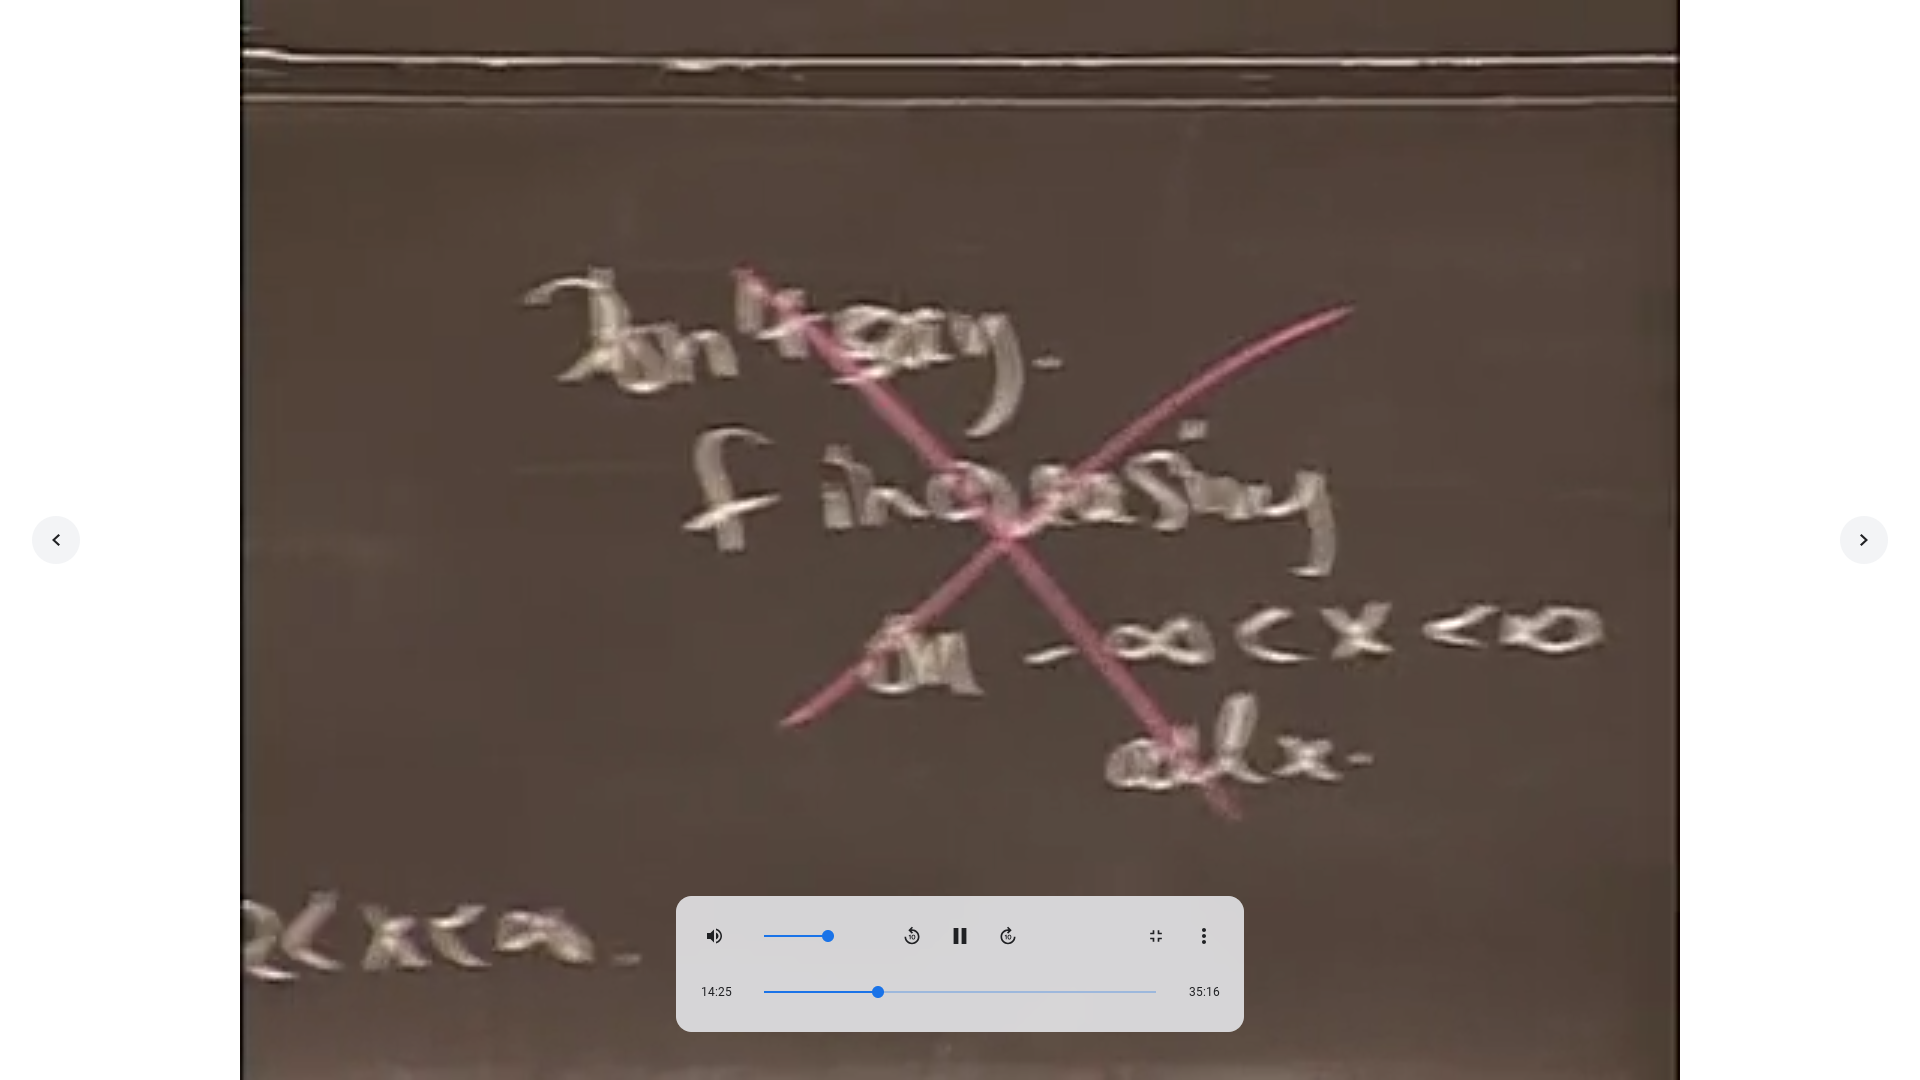 Don't say.
f increasing
on -∞<x<∞
all x.
2<x<∞.
14:25
35:16